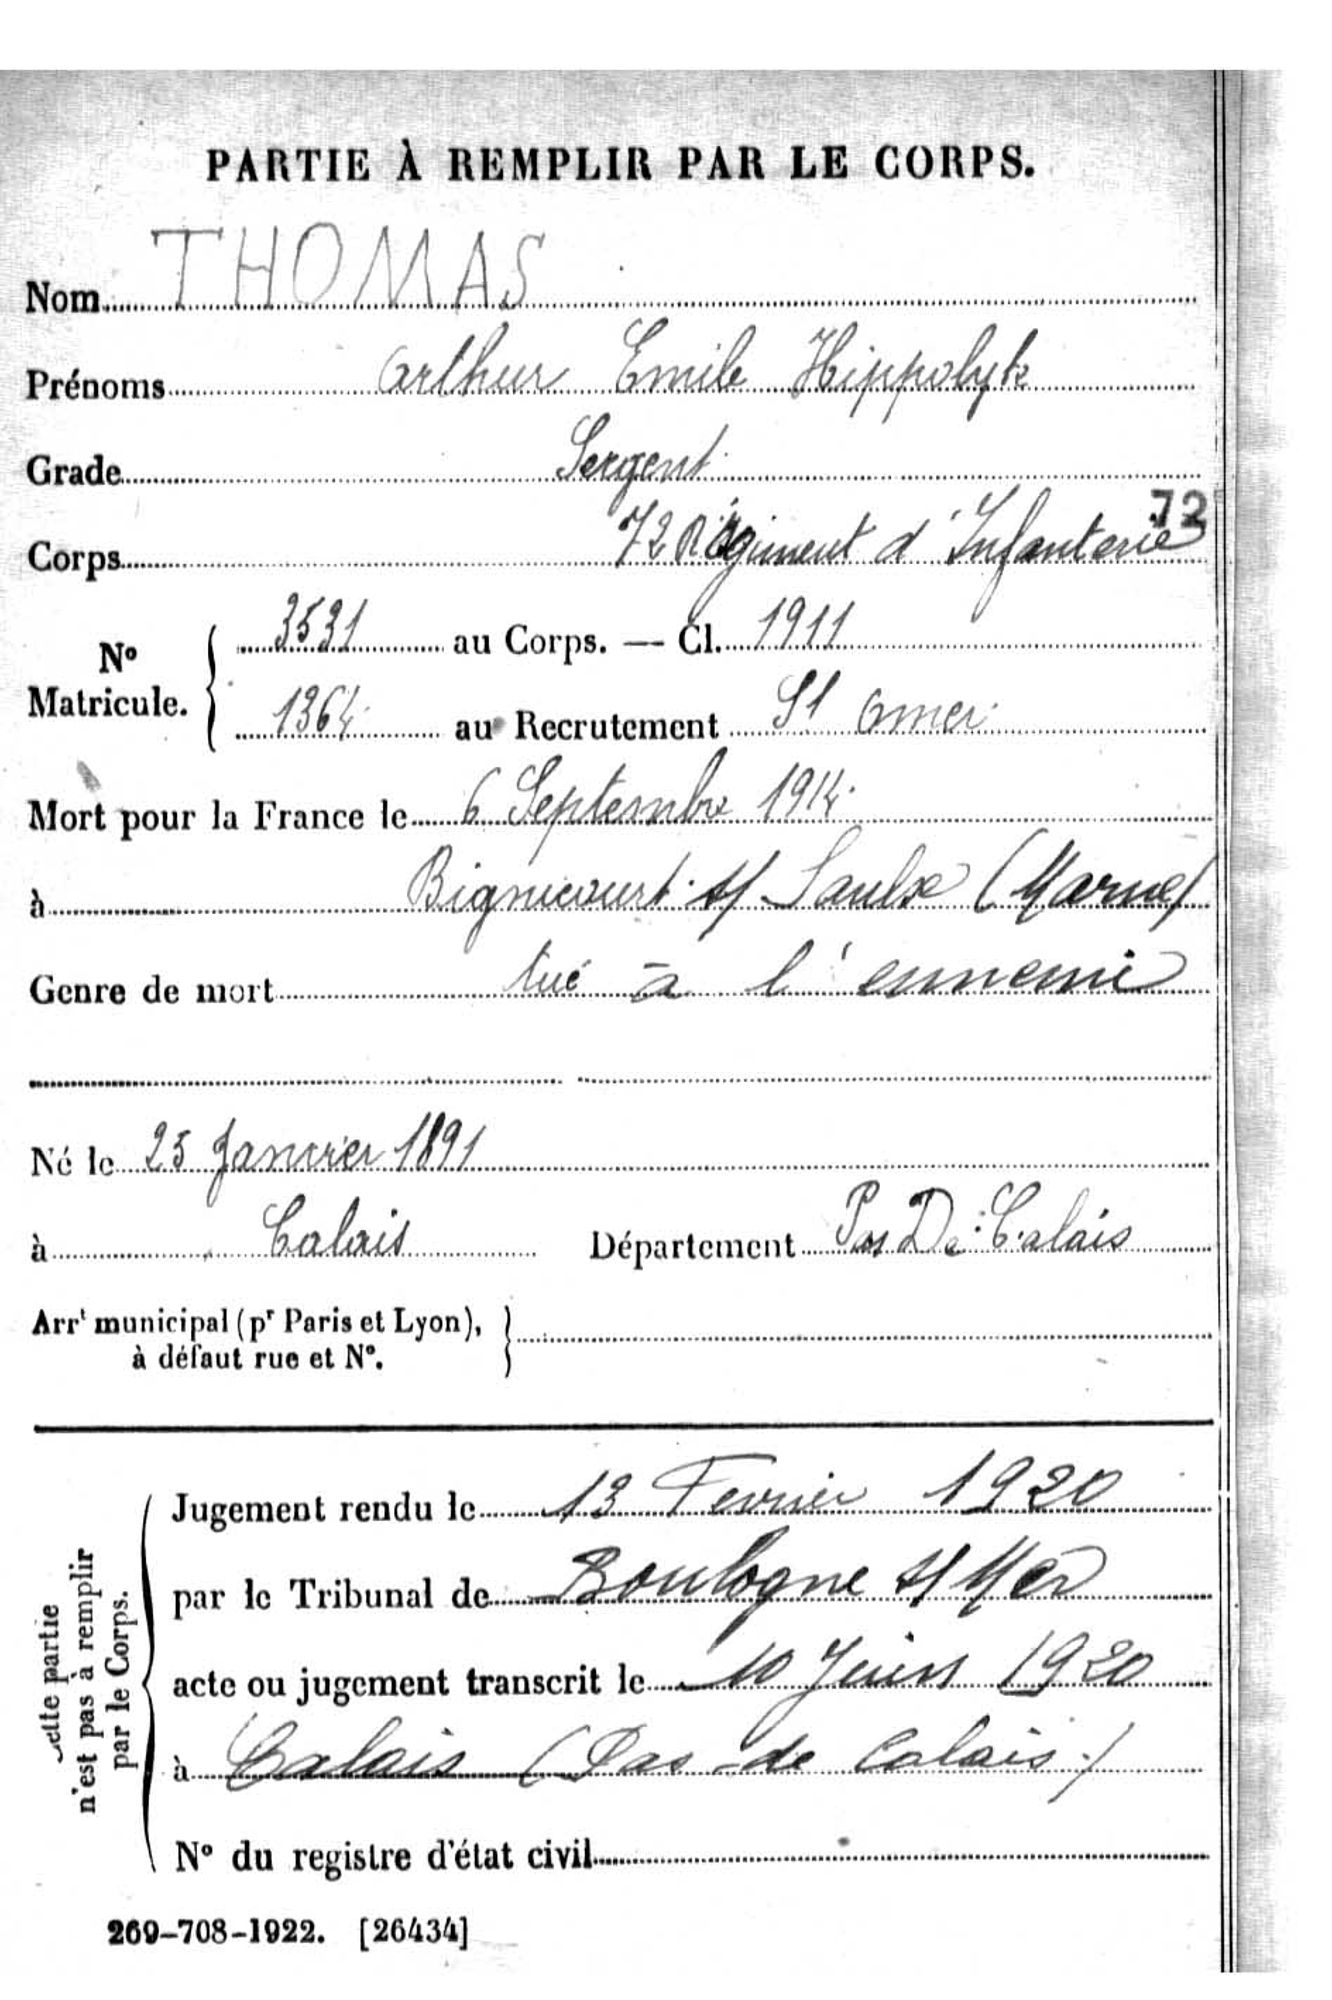 PARTIE À REMPLIR PAR LE CORPS.
Nom THOMAS
Prénoms Arthur Emile Hippolyte
Grade Sergent
72
Corps 72 Régiment d'Infanterie
N° Matricule. 3531 au Corps. — Cl. 1911
1364 au Recrutement St Omer
Mort pour la France le 6 Septembre 1914
à Bignicourt s/ Saulx (Marne)
Genre de mort tué à l'ennemi
Né le 25 Janvier 1891
à Calais Département Pas De Calais
Arrt municipal (pr Paris et Lyon),
à défaut rue et N°.
Cette partie
n'est pas à remplir
par le Corps.
Jugement rendu le 13 Fevrier 1920
par le Tribunal de Boulogne s/ Mer
acte ou jugement transcrit le 10 Juin 1920
à Calais (Pas-de Calais)
N° du registre d'état civil
269-708-1922. [26434]